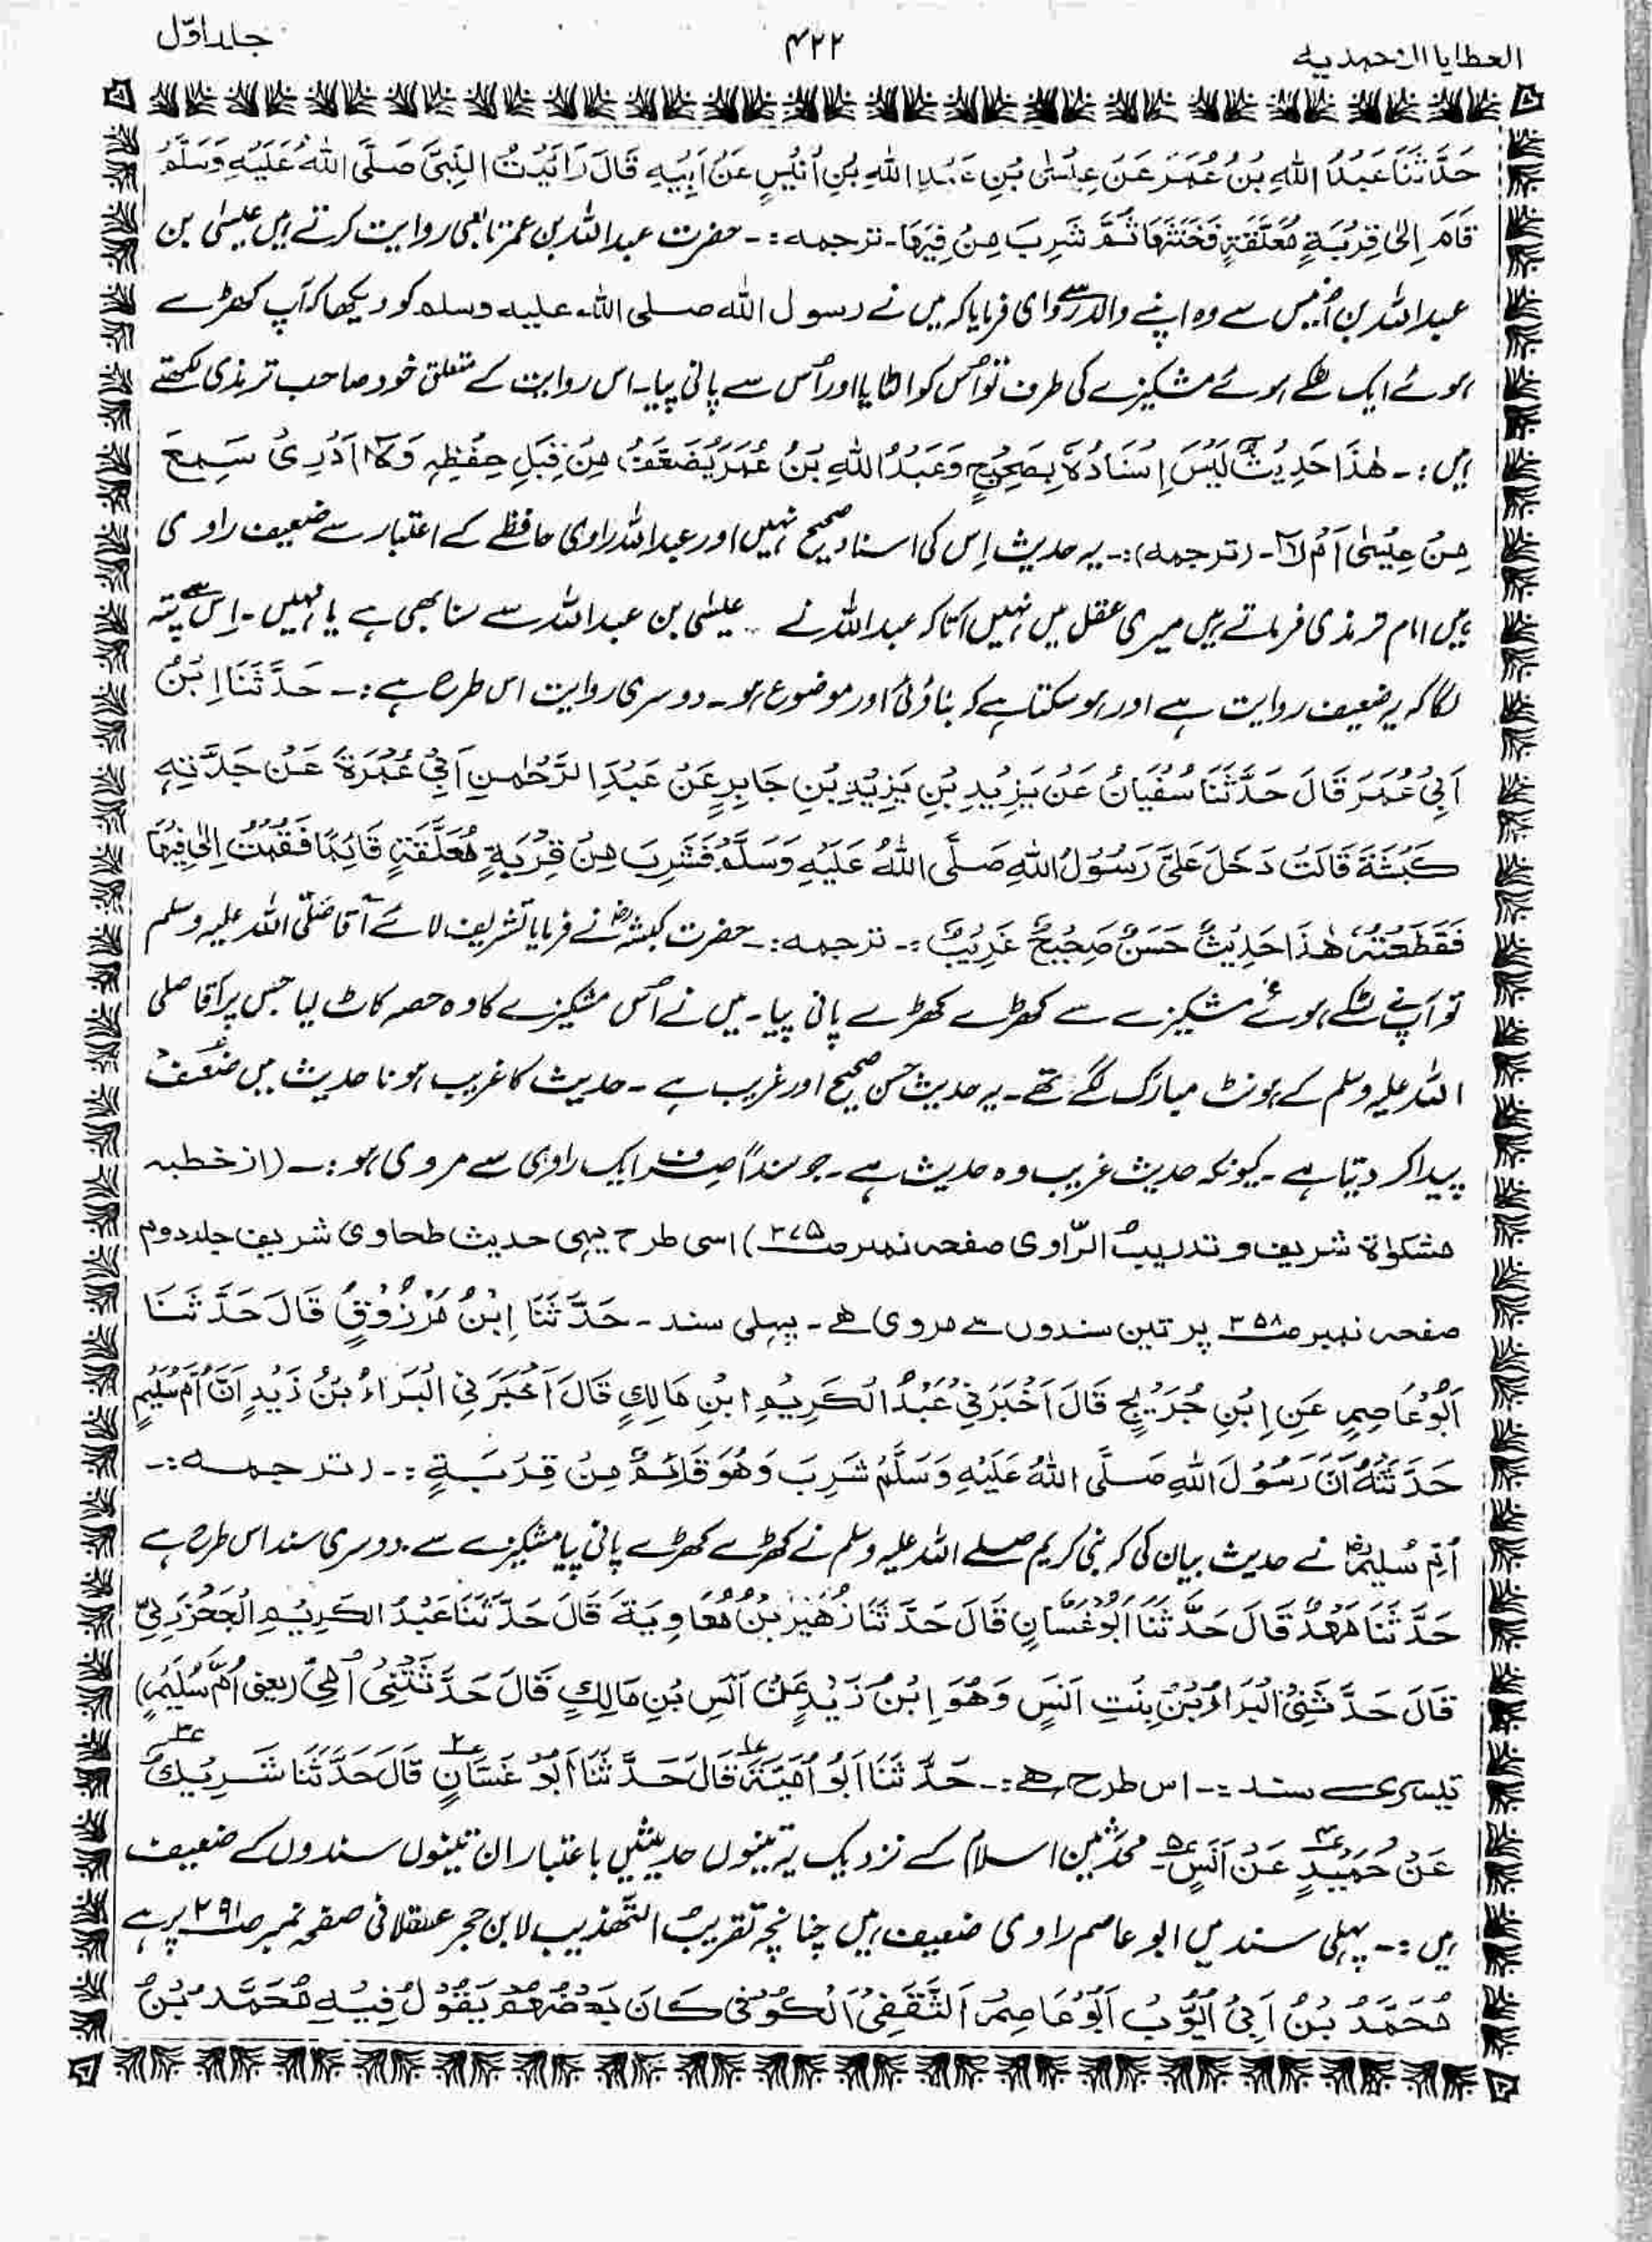 العطایا الاحمدیه ۴۲۲ جلد اوّل
حَدَّثَنَا عَبْدُ اللهِ بْنُ عُمَرَ عَنْ عِیْسٰی بْنِ عَبْدِ اللهِ بْنِ اُنَیْسٍ عَنْ اَبِیْهِ قَالَ رَاَیْتُ النَّبِیَّ صَلَّی اللهُ عَلَیْهِ وَسَلَّمَ
قَامَ اِلٰی قِرْبَةٍ مُعَلَّقَةٍ فَخَنَثَهَا ثُمَّ شَرِبَ مِنْ فِیْهَا۔ ترجمه :۔ حضرت عبداللہ بن عمر تابعی روایت کرتے ہیں عیسٰی بن
عبداللہ بن اُنیس سے وہ اپنے والد سے راوی فرمایا کہ میں نے رسول اللہ صلی اللہ علیہ وسلم کو دیکھا کہ آپ کھڑے
ہوئے ایک لٹکے ہوئے مشکیزے کی طرف تو اُس کو الٹایا اور اُس سے پانی پیا۔ اس روایت کے متعلق خود صاحب ترمذی لکھتے
ہیں :۔ هٰذَا حَدِیْثٌ لَیْسَ اِسْنَادُهٗ بِصَحِیْحٍ وَعَبْدُ اللهِ بْنُ عُمَرَ یُضَعَّفُ مِنْ قِبَلِ حِفْظِهٖ وَلَا اَدْرِیْ سَمِعَ
مِنْ عِیْسٰی اَمْ لَا۔ (ترجمه) :۔ یہ حدیث اِس کی اسناد صحیح نہیں اور عبداللہ راوی حافظے کے اعتبار سے ضعیف راوی
ہیں امام ترمذی فرماتے ہیں میری عقل میں نہیں آتا کہ عبداللہ نے عیسٰی بن عبداللہ سے سنا بھی ہے یا نہیں۔ اِس سے پتہ
لگا کہ یہ ضعیف روایت ہے اور ہو سکتا ہے کہ بناوٹی اور موضوع ہو۔ دوسری روایت اس طرح ہے :۔ حَدَّثَنَا اِبْنُ
اَبِیْ عُمَرَ قَالَ حَدَّثَنَا سُفْیَانُ عَنْ یَزِیْدِ بْنِ یَزِیْدِ بْنِ جَابِرٍ عَنْ عَبْدِ الرَّحْمٰنِ اَبِیْ عُمْرَةَ عَنْ جَدَّتِهٖ
کَبْشَةَ قَالَتْ دَخَلَ عَلَیَّ رَسُوْلُ اللهِ صَلَّی اللهُ عَلَیْهِ وَسَلَّمَ فَشَرِبَ مِنْ قِرْبَةٍ مُعَلَّقَةٍ قَائِمًا فَقُمْتُ اِلٰی فِیْهَا
فَقَطَعْتُهٗ هٰذَا حَدِیْثٌ حَسَنٌ صَحِیْحٌ غَرِیْبٌ :۔ ترجمه :۔ حضرت کبشہ رض نے فرمایا تشریف لائے آقا صلّی اللہ علیہ وسلم
تو آپنے لٹکے ہوئے مشکیزے سے کھڑے کھڑے پانی پیا۔ میں نے اُس مشکیزے کا وہ حصہ کاٹ لیا جس پر آقا صلی
اللہ علیہ وسلم کے ہونٹ مبارک لگے تھے۔ یہ حدیث حسن صحیح اور غریب ہے۔ حدیث کا غریب ہونا حدیث میں ضُعف
پیدا کر دیتا ہے۔ کیونکہ حدیث غریب وہ حدیث ہے۔ جو سنداً صرف ایک راوی سے مروی ہو :۔ (از خطبہ
مشکوٰة شریف و تدریبُ الرّاوی صفحہ نمبر ص۳۷۵) اسی طرح یہی حدیث طحاوی شریف جلد دوم
صفحہ نمبر ص۳۵۸ پر تین سندوں سے مروی ہے۔ پہلی سند۔ حَدَّثَنَا اِبْنُ مَرْزُوْقٍ قَالَ حَدَّثَنَا
اَبُوْعَاصِمٍ عَنِ اِبْنِ جُرَیْجٍ قَالَ اَخْبَرَنِیْ عَبْدُ الْکَرِیْمِ ابْنِ مَالِكٍ قَالَ اَخْبَرَنِی الْبَرَاءُ بْنُ زَیْدٍ اَنَّ اُمَّ سُلَیْمٍ
حَدَّثَتْهُ اَنَّ رَسُوْلَ اللهِ صَلَّی اللهُ عَلَیْهِ وَسَلَّمَ شَرِبَ وَهُوَ قَائِمٌ مِنْ قِرْبَةٍ :۔ (ترجمه :۔
اُمِّ سُلیم رض نے حدیث بیان کی کہ نبی کریم صلے اللہ علیہ وسلم نے کھڑے کھڑے پانی پیا مشکیزے سے۔ دوسری سند اس طرح ہے
حَدَّثَنَا فَهْدٌ قَالَ حَدَّثَنَا اَبُوْ غَسَّانٍ قَالَ حَدَّثَنَا زُهَیْرُ بْنُ مُعَاوِیَةَ قَالَ حَدَّثَنَا عَبْدُ الکَرِیْمِ الْجَحْزَرِیُّ
قَالَ حَدَّثَنِیْ الْبَرَاءُ بْنُ بِنْتِ اَنَسٍ وَهُوَ اِبْنُ زَیْدٍ عَنْ اَنَسِ بْنِ مَالِكٍ قَالَ حَدَّثَتْنِیْ اُمِّیْ (یعنی اُمِّ سُلَیْمٍ)
تیسری سند :۔ اس طرح ہے :۔ حَدَّثَنَا اَبُوْ اُمَیَّةَ قَالَ حَدَّثَنَا اَبُوْ غَسَّانٍ قَالَ حَدَّثَنَا شَرِیْكٌ
عَنْ حُمَیْدٍ عَنْ اَنَسٍ۔ محدّثینِ اسلام کے نزدیک یہ تینوں حدیثیں باعتبار ان تینوں سندوں کے ضعیف
ہیں :۔ پہلی سند میں ابو عاصم راوی ضعیف ہیں چنانچہ تقریبُ التَّھذیب لابن حجر عسقلانی صفحہ نمبر ص۲۹۱ پر ہے
مُحَمَّدُ بْنُ اَبِیْ اَیُّوْبُ اَبُوْعَاصِمُ اَلثَّقَفِیْ اَلْکُوْفِیْ کَانَ بَعْضُهُمْ یَقُوْلُ فِیْهِ مُحَمَّدُ بْنُ